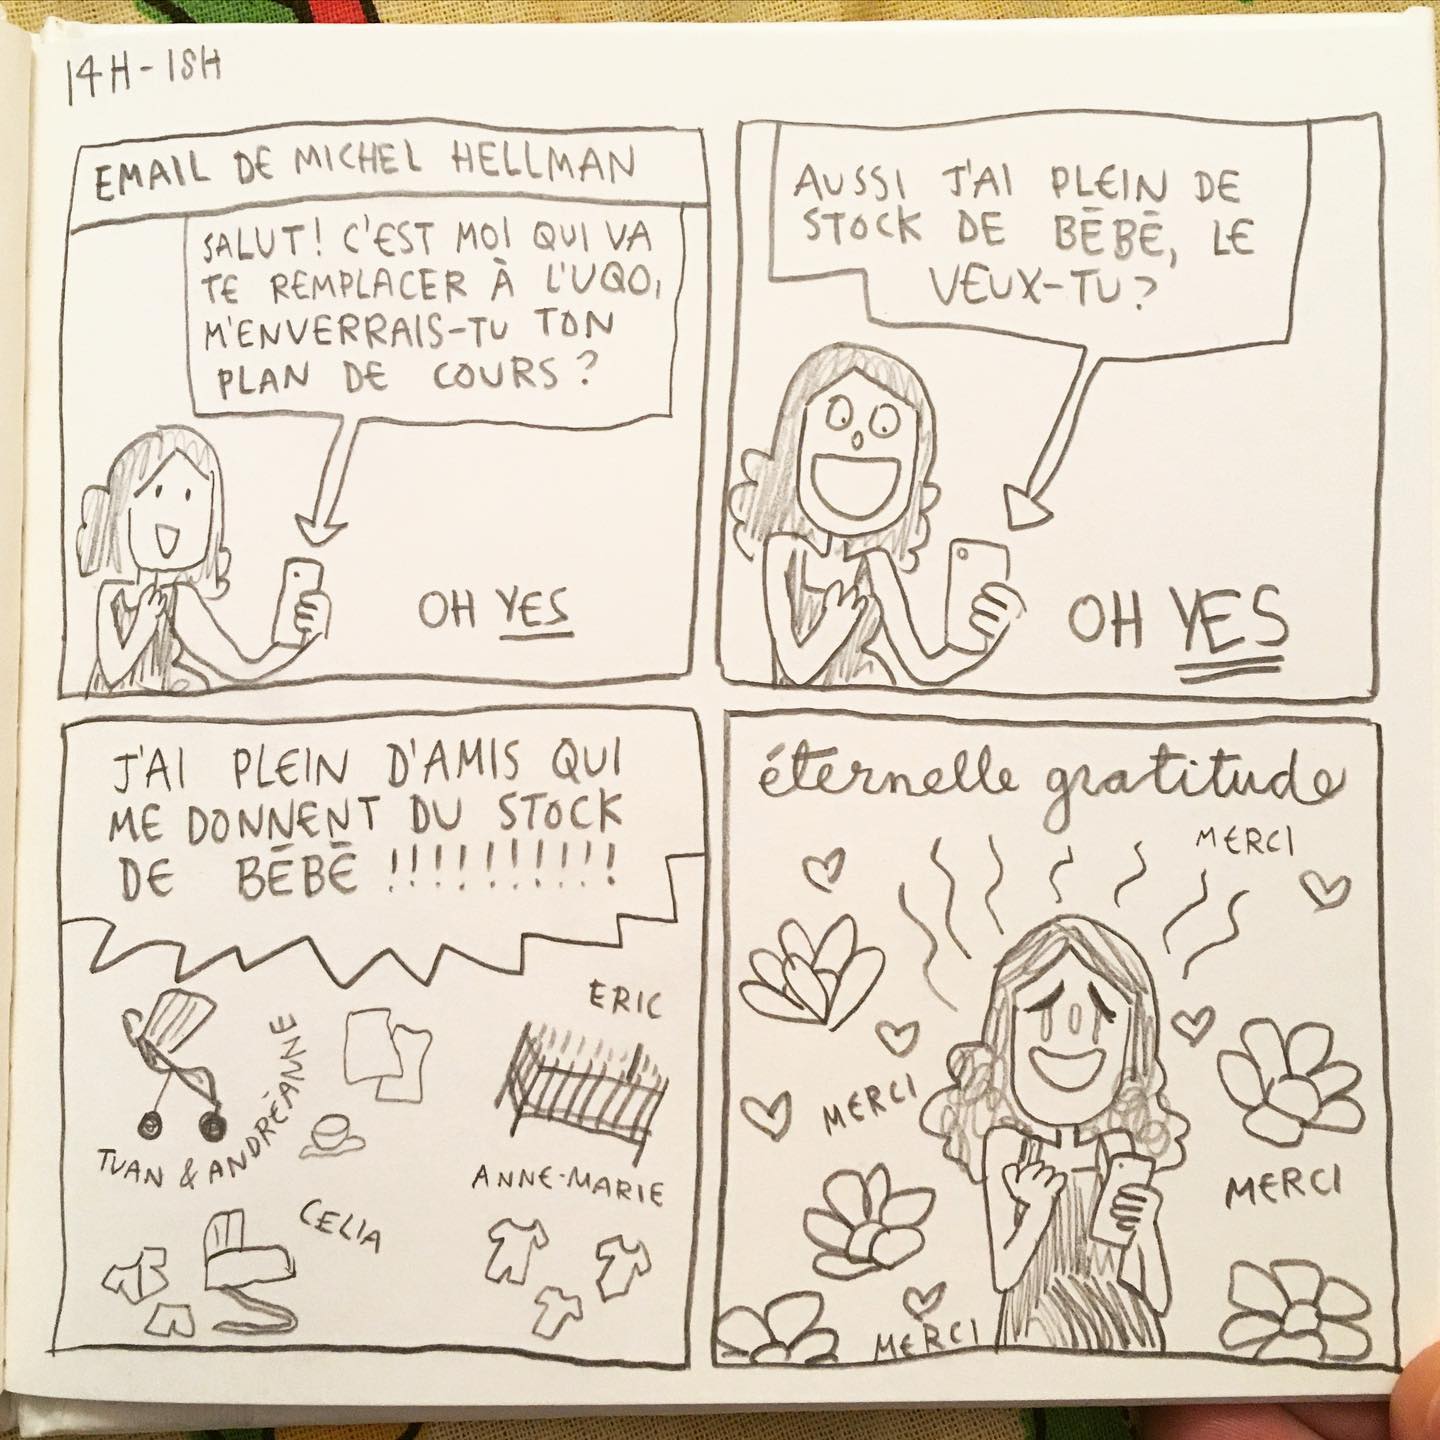 14H-15H
EMAIL DE MICHEL HELLMAN
SALUT! C'EST MOI QUI VA
TE REMPLACER À L'UQO,
M'ENVERRAIS-TU TON
PLAN DE COURS?
OH YES
AUSSI J'AI PLEIN DE
STOCK DE BÉBÉ, LE
VEUX-TU?
OH YES
J'AI PLEIN D'AMIS QUI
ME DONNENT DU STOCK
DE BÉBÉ !!!!!!!!!!
TVAN & ANDRÉANNE
ERIC
CELIA
ANNE-MARIE
éternelle gratitude
MERCI
MERCI
MERCI
MERCI